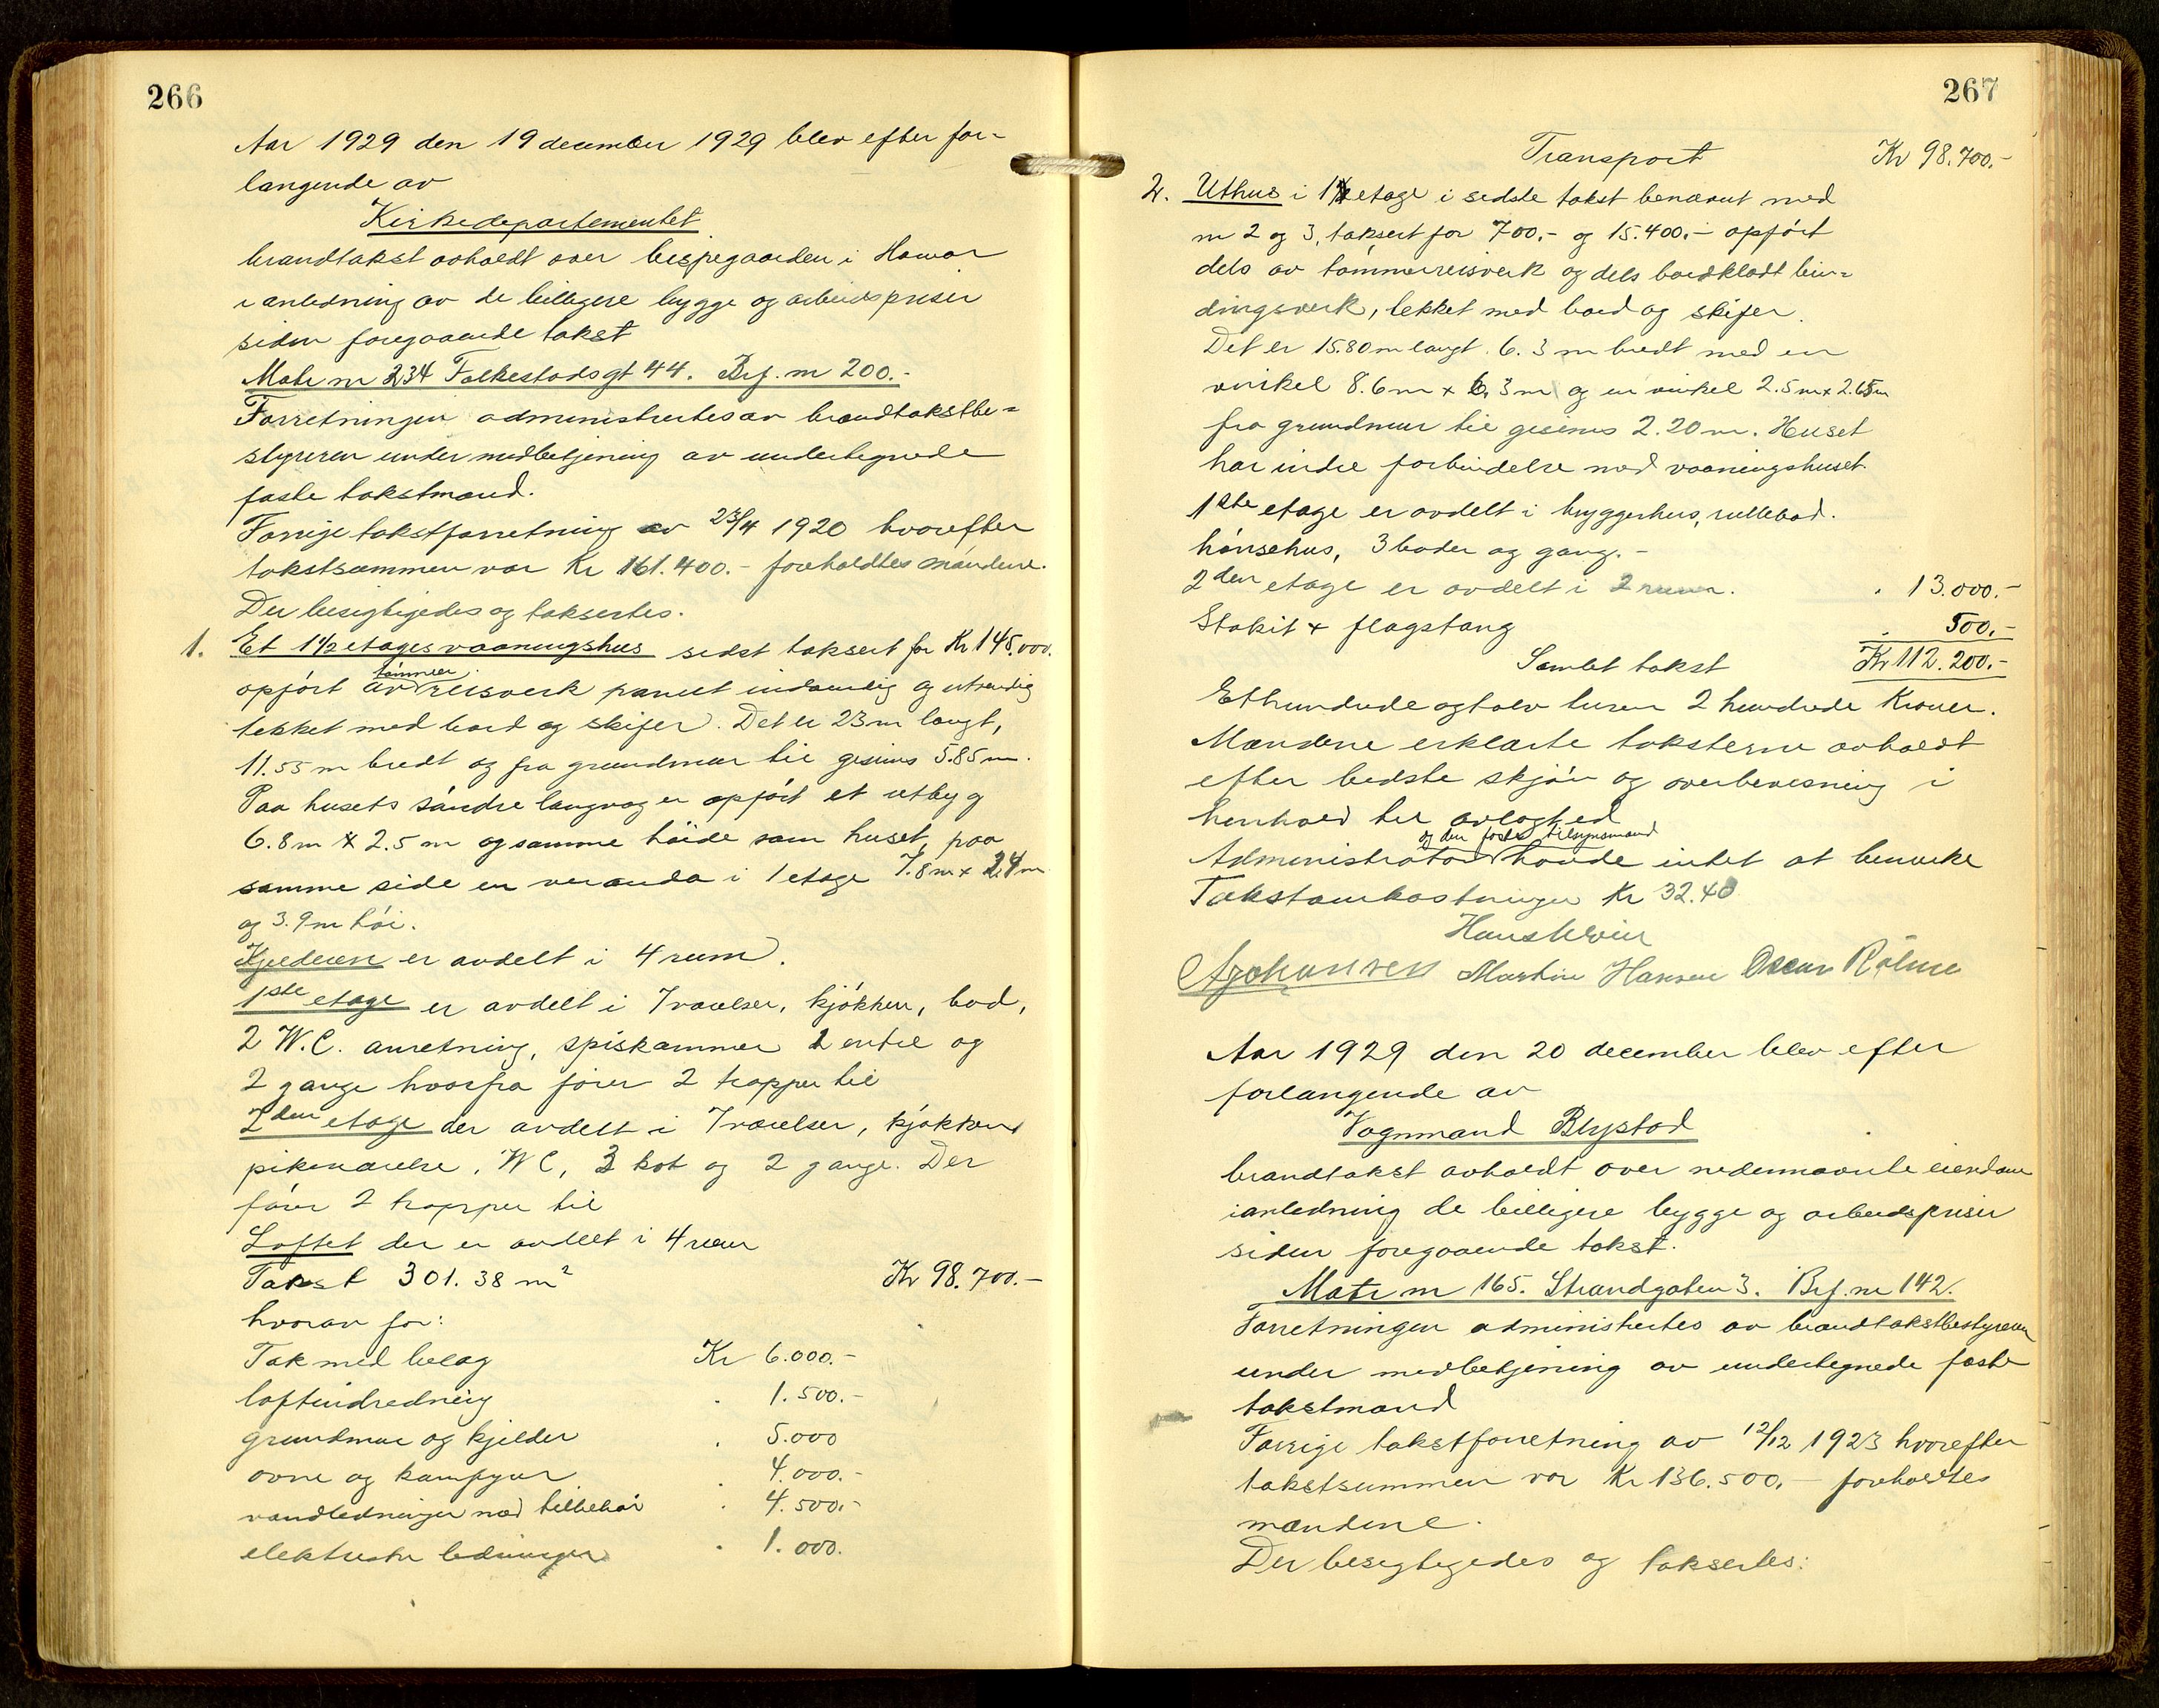 266
Aar 1929 den 19 december 1929 blev efter for-
langende av
Kirkedepartementet
brandtakst avholdt over bispegaarden i Hamar
i anledning av de billigere bygge og arbeidspriser
siden foregaaende takst
Matr nr 234 Folkestadsgt 44. Brf. nr 200.-
Forretningen administrertes av brandtakstbe-
styreren under medbetjening av undertegnede
faste takstmænd.
Forrige takstforretning av 23/4 1920 hvorefter
takstsummen var Kr 161.400.- foreholdtes mændene.
Der besigtigedes og taksertes.
1. Et 1 1/2 etages vaaningshus sidst taksert for Kr 145.000.
opført av tømmer reisverk panelt indvendig og utvendig
tekket med bord og skifer. Det er 23 m langt,
11.55 m bredt og fra grundmur til gesims 5.85 m.
Paa husets søndre langvæg er opført et utbygg
6.8 m x 2.5 m og samme høide som huset, paa
samme side en veranda i 1 etage 7.8 m x 2.4 m
og 3.9 m høi.
Kjelderen er avdelt i 4 rum.
1ste etage er avdelt i 7 værelser, kjøkken, bod,
2 W.C. anretning, spiskammer 2 entre og
2 gange hvorfra fører 2 trapper til
2den etage der avdelt i 7 værelser, kjøkken
pikeværelse, WC, 3 kot og 2 gange. Der
fører 2 trapper til
Loftet der er avdelt i 4 rum
Takst 301.38 m2 Kr 98.700.-
hvorav for:
Tak med belæg Kr 6.000.-
loftindredning . 1.500.-
grundmur og kjelder . 5.000
ovne og komfyrer . 4.000.-
vandledninger med tilbehør . 4.500.-
elektriske ledninger . 1.000.
267
Transport Kr 98.700.-
2. Uthus i 1 etage i sidste takst benævnt med
nr 2 og 3, taksert for 700.- og 15.400.- opført
dels av tømmerreisverk og dels bordklædt bin-
dingsverk, tekket med bord og skifer.
Det er 15.80 m langt. 6.3 m bredt med en
vinkel 8.6 m x 6.3 m og en vinkel 2.5 m x 2.65 m
fra grundmur til gesims 2.20 m. Huset
har indre forbindelse med vaaningshuset.
1ste etage er avdelt i bryggerhus, rullebod.
hønsehus, 3 boder og gang.-
2den etage er avdelt i 2 rum. . 13.000.-
Stakit + flagstang . 500.-
Samlet takst Kr 112.200.-
Ethundrede og tolv tusen 2 hundrede Kroner.
Mændene erklærte taksterne avholdt
efter bedste skjøn og overbevisning i
henhold til avlagt ed
og den faste tilsynsmand
Administrator havde intet at bemerke
Takstomkostninger Kr 32.40
A Johansen Martin Hansen Oscar
Aar 1929 den 20 december blev efter
forlangende av
Vognmand Blystad
brandtakst avholdt over nedennævnte eiendom
i anledning de billigere bygge og arbeidspriser
siden foregaaende takst.
Matr nr 165. Strandgaten 3. Brf. nr 142.
Forretningen administrertes av brandtakstbestyreren
under medbetjening av undertegnede faste
takstmænd
Forrige takstforretning av 12/12 1923 hvorefter
takstsummen var Kr 136.500.- foreholdtes
mændene.
Der besigtigedes og taksertes: